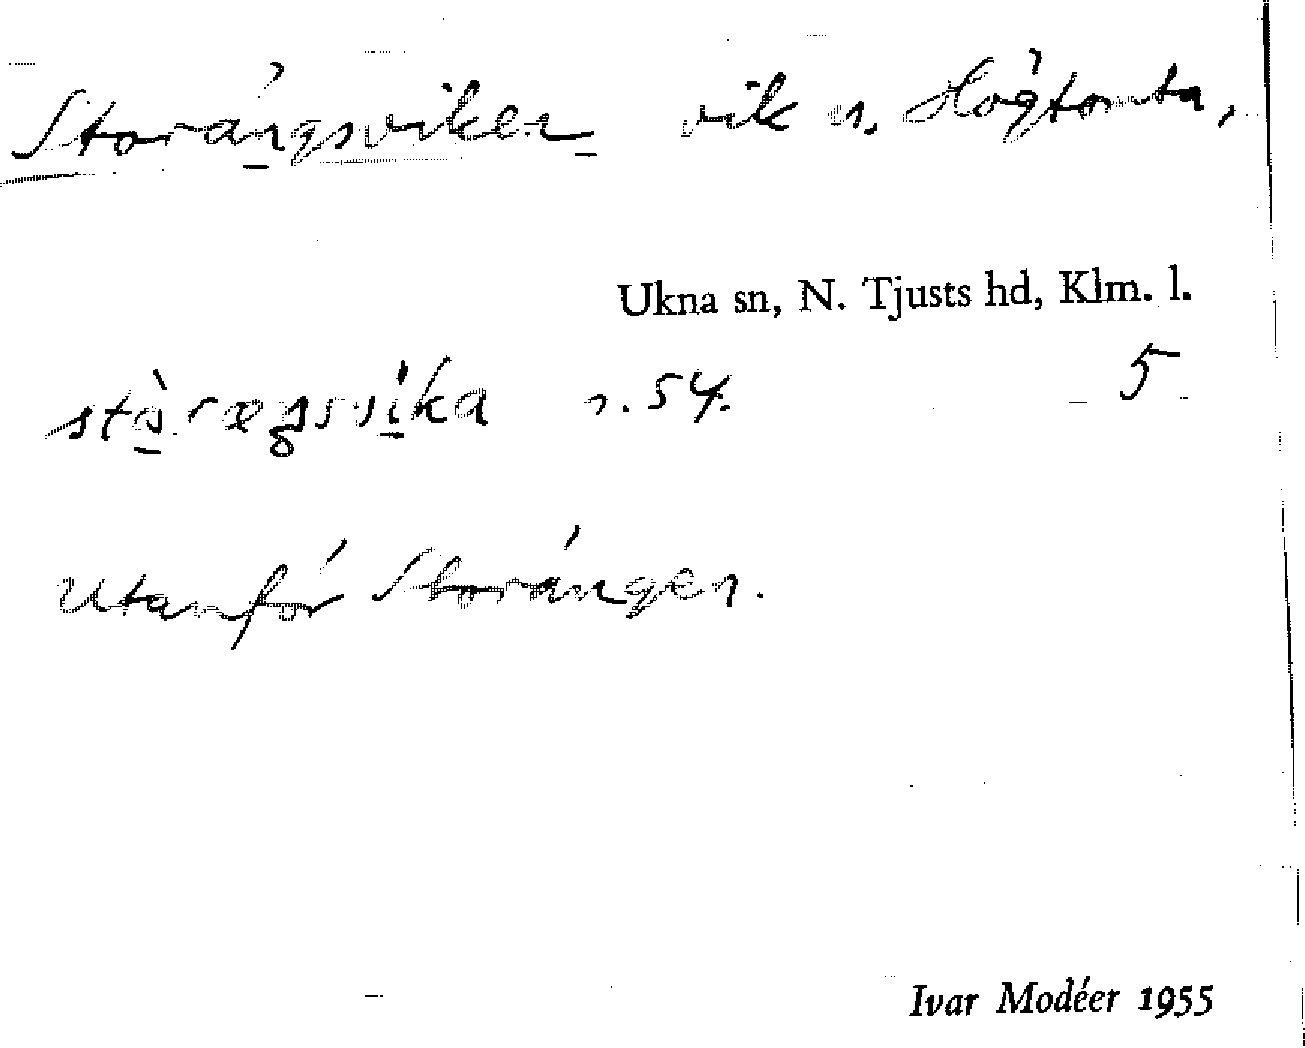 Storängsviken vik n. Högtomta,
Ukna sn, N. Tjusts hd, Klm. l.
5
stòræŋsvíka r. 54.
Utanför Storängen.
Ivar Modéer 1955